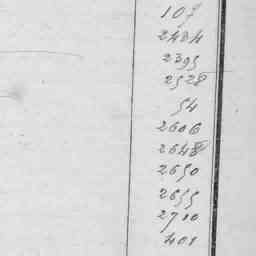 107
2484
2395
2528
54
2606
2648
2650
2655
2710
401